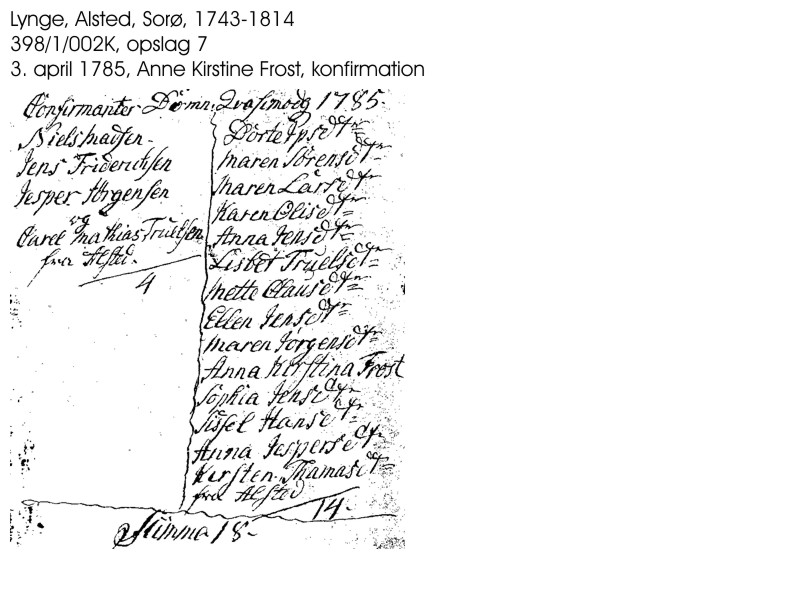 Lynge, Alsted, Sorø, 1743-1814
398/1/002K, opslag 7
3. april 1785, Anne Kirstine Frost, konfirmation
Confirmanter Domin. Quasimodg 1785.
Niels Madsen.
Jens Friderichsen
Jesper Jörgensen
og
Carel Mathias Truelsen
fra Alsted.
4
Dorte Ipsdtr
Maren Sörensdtr
Maren Larsdtr
Karen Olisdtr
Anna Jensdtr
Lisbet Truelsdtr
Mette Clausdtr
Ellen Jensdtr
Maren Jörgensdtr
Anna Kirstina Frost
Sophia Jensdtr
Sissel Hansdtr
Anna Jespersdtr
Kirsten Thamasdtr
fra Alsted
14.
Summa 18.